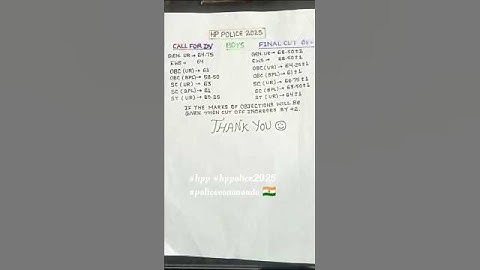 HP POLICE 2025
CALL FOR DV BOYS FINAL CUT OFF
GEN. UR → 64.75 GEN. UR → 68.50±1
EWS → 64 EWS → 68.50±1
OBC (UR) → 61 OBC (UR) → 64.25±1
OBC (BPL) → 58.50 OBC (BPL) → 61±1
SC (UR) → 63 SC (UR) → 66.75±1
SC (BPL) → 61 SC (BPL) → 63.50±1
ST (UR) → ST (UR) → 64±1
IF THE MARKS OF OBJECTIONS WILL BE
GIVEN THEN CUT OFF INCREASES BY +2.
THANK YOU ☺
#hpp #hppolice2025
🇮🇳